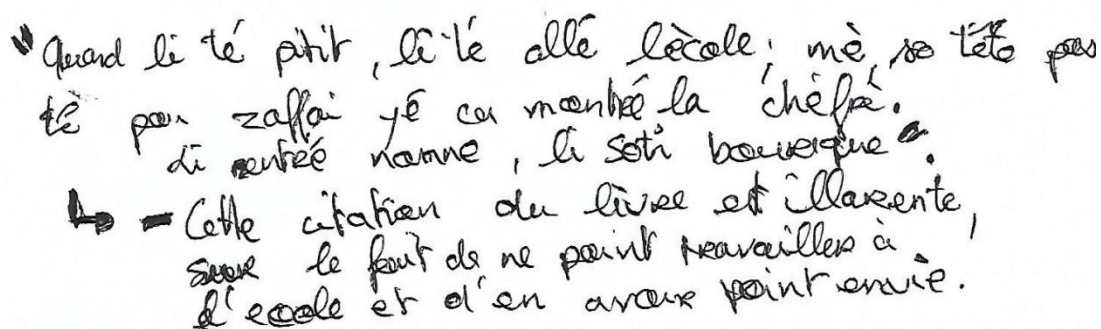 "Quand li té pitit, li té allé lècole; mè, so tête pas
té pou zaffai yé ca montré la chèfrè.
Li entré namne, li soti bourrique".
↳ - Cette citation du livre est illarente,
sure le fait de ne point travailler à
l'ecole et d'en avoir point envie.